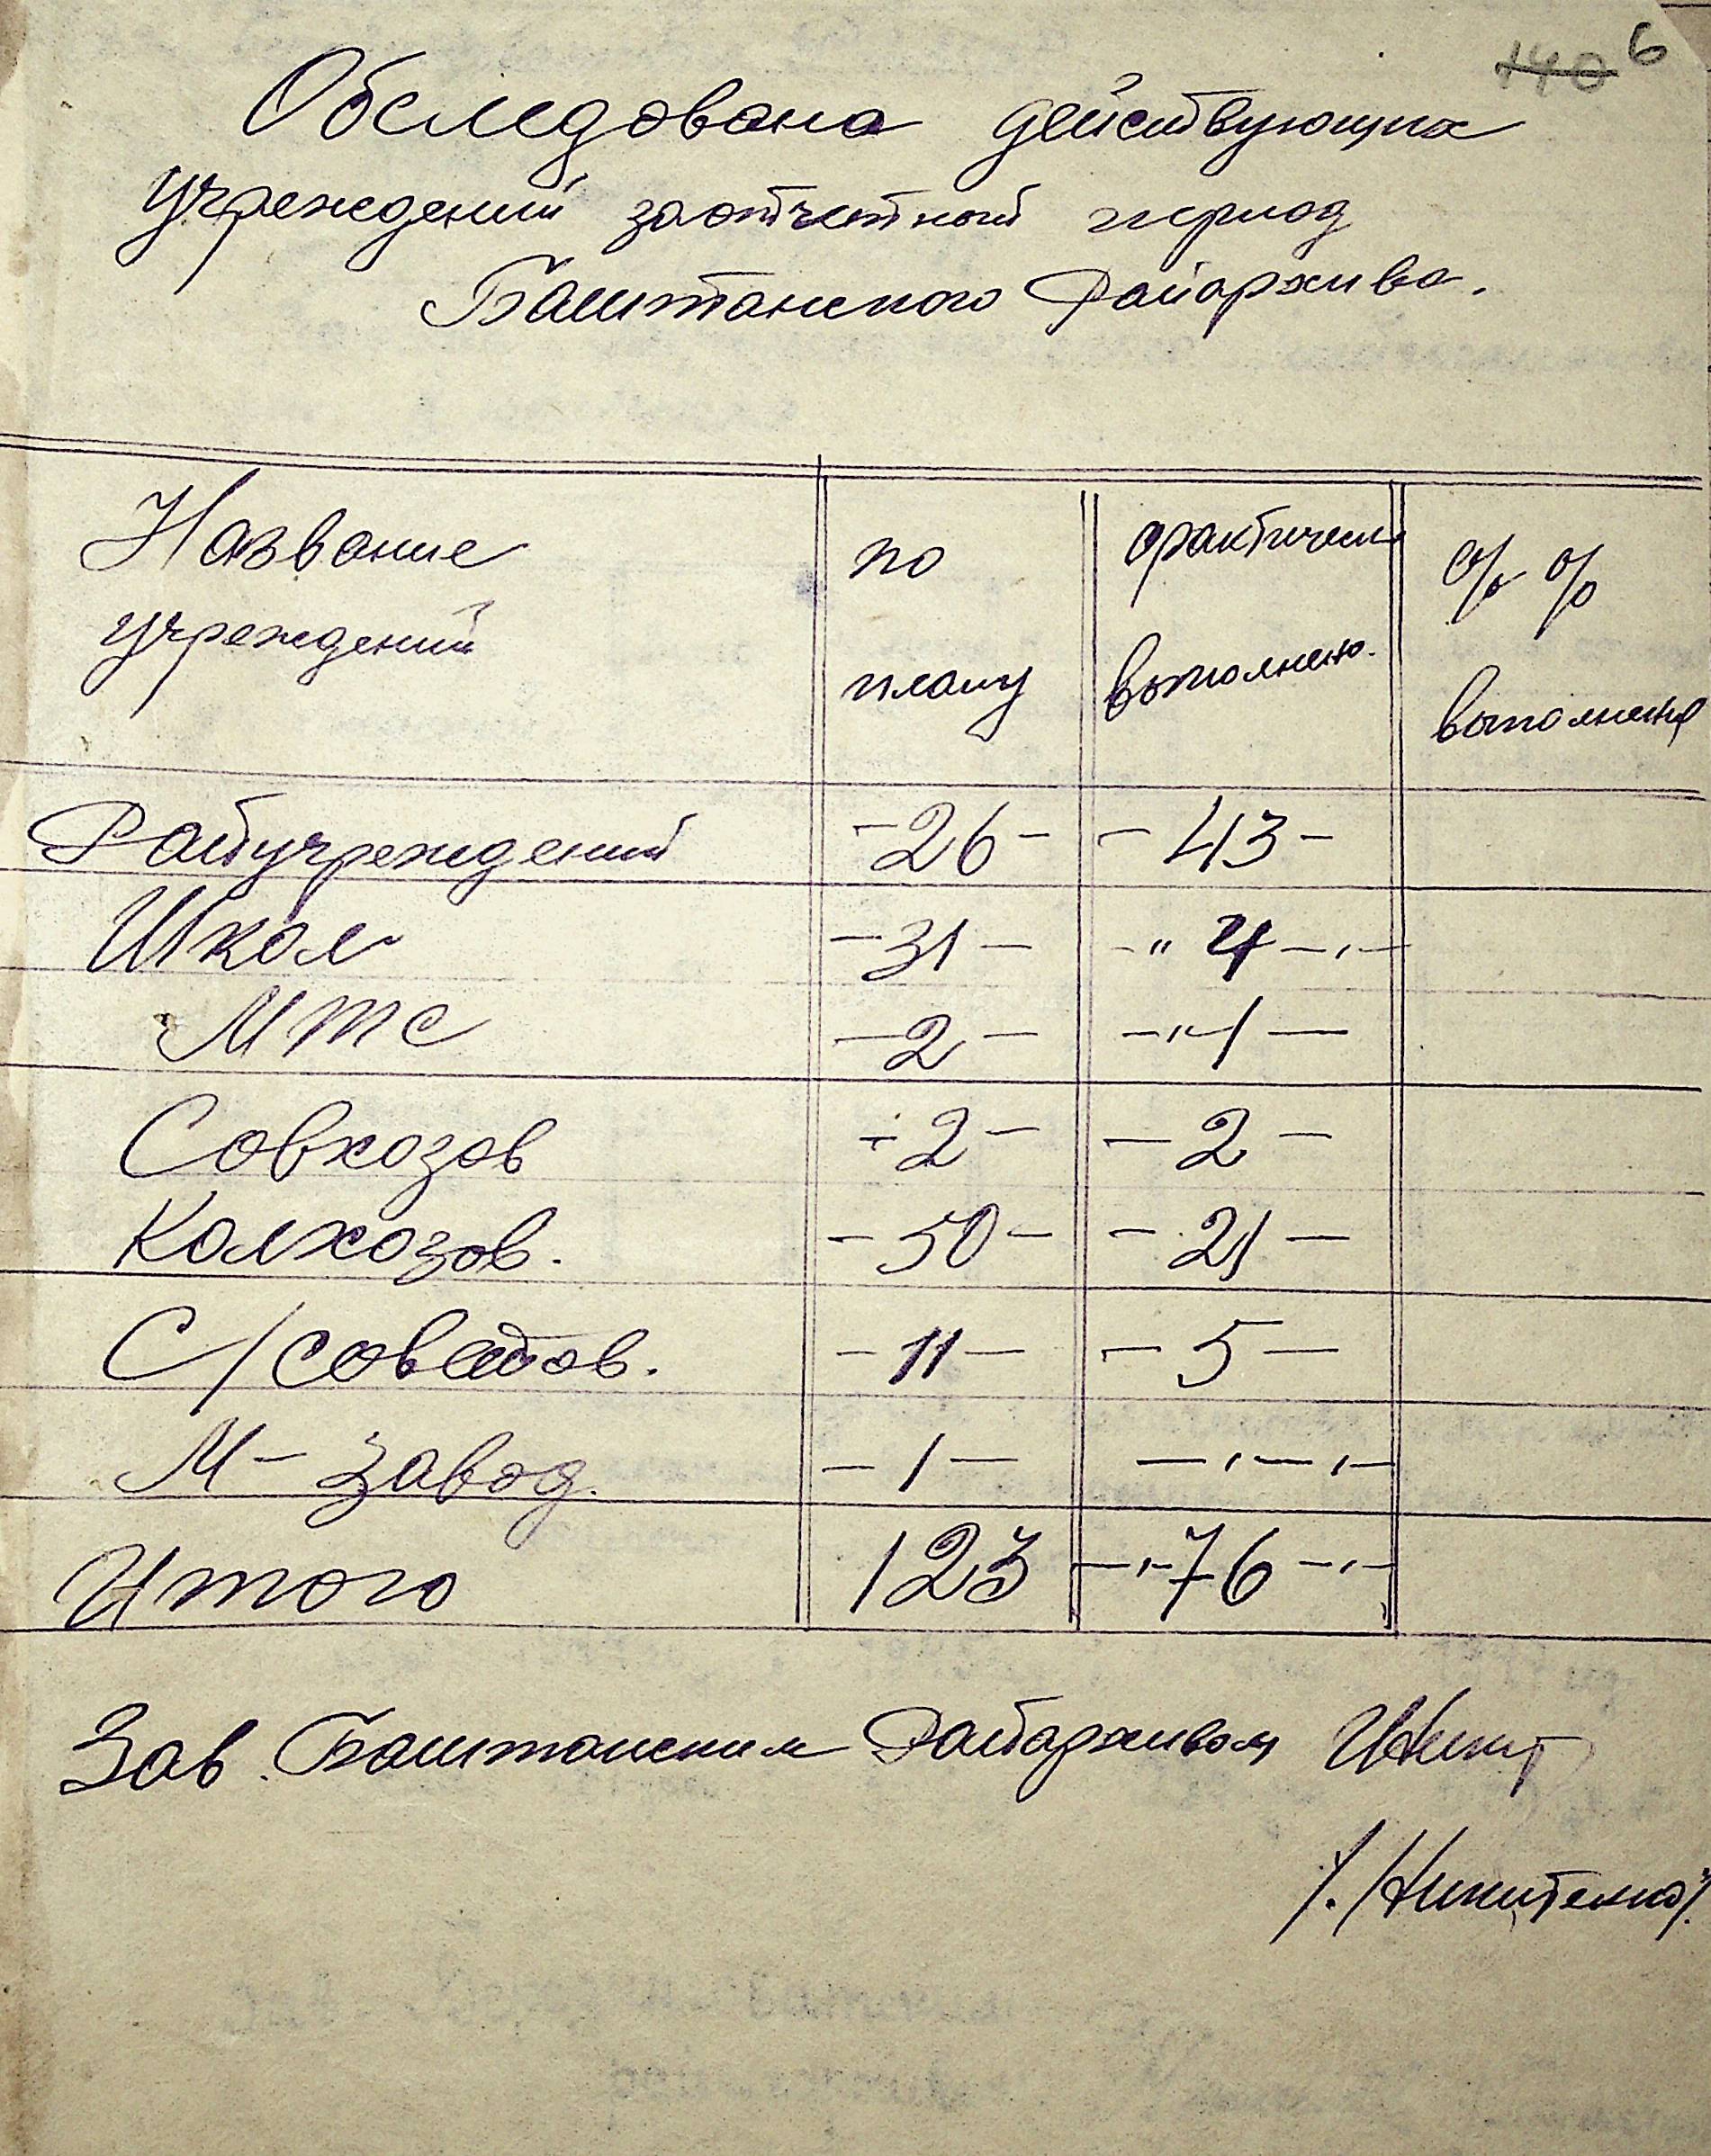 140 6
Обследовано действующих
учреждений заотчетный период
Баштанского Райархива.
Название учреждений | по плану | фактически выполнено. | % % выполнения
Райучреждений | -26- | -43-
Школ | -31- | -"4-"-
МТС | -2- | -"-1-
Совхозов | -2- | -2-
Колхозов. | -50- | -21-
С/советов. | -11- | -5-
М-завод. | -1- | -"-"-
Итого | 123 | -"-76-"-
Зав. Баштанским Райархивом
/Никитенко/.